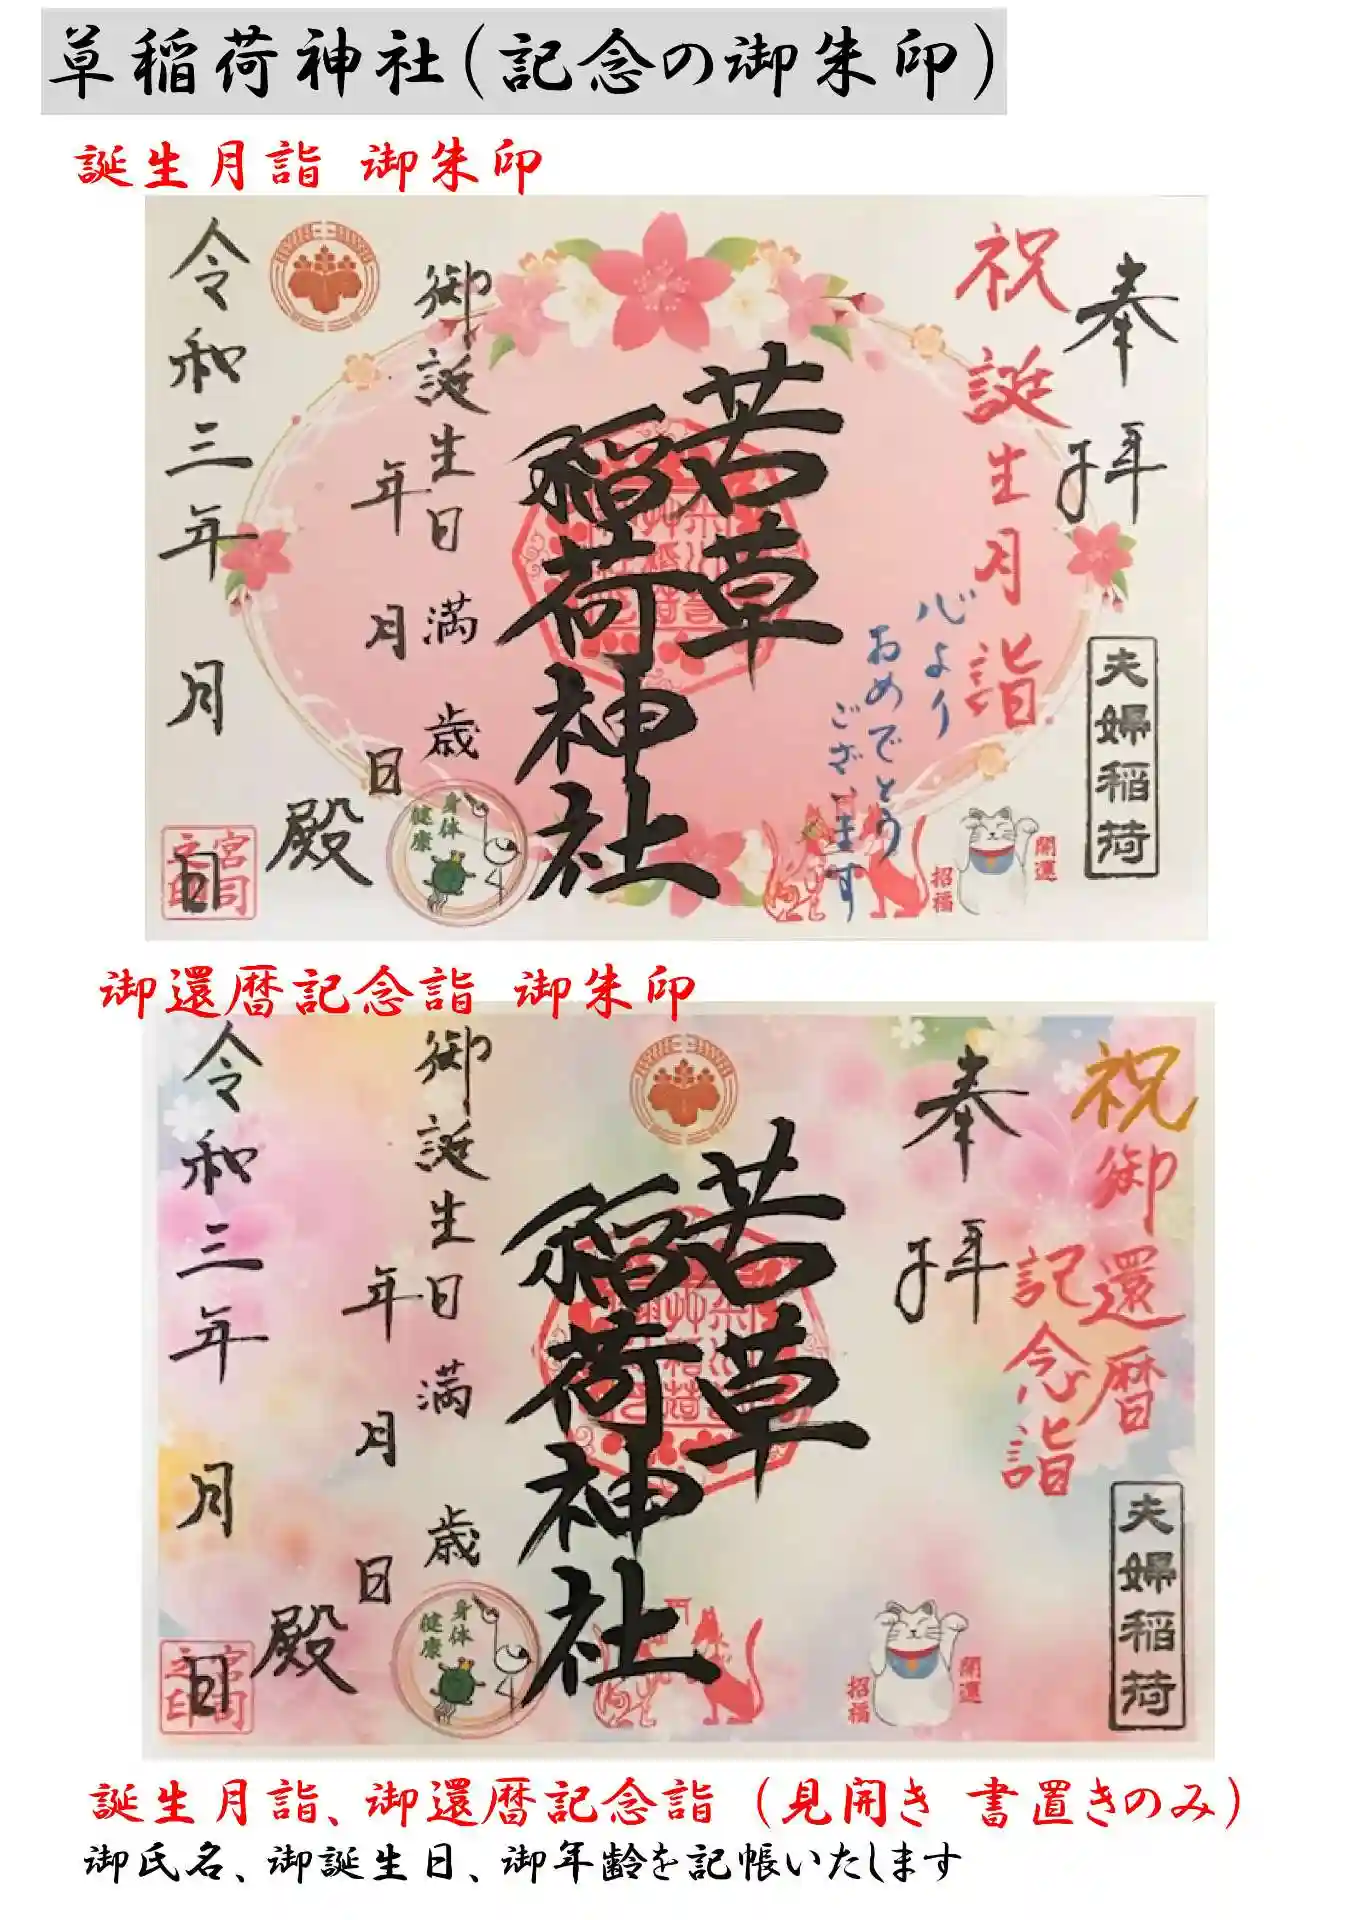 草稲荷神社(記念の御朱印)
誕生月詣 御朱印
奉拝
夫婦稲荷
祝誕生月詣
心より
おめでとう
ございます
若草
稲荷神社
御誕生日満 歳
年 月 日
殿
令和三年 月 日
宮司
之印
身体
健康
開運
招福
御還暦記念詣 御朱印
祝御還暦
記念詣
奉拝
夫婦稲荷
若草
稲荷神社
御誕生日満 歳
年 月 日
殿
令和三年 月 日
宮司
之印
身体
健康
開運
招福
誕生月詣、御還暦記念詣 (見開き 書置きのみ)
御氏名、御誕生日、御年齢を記帳いたします